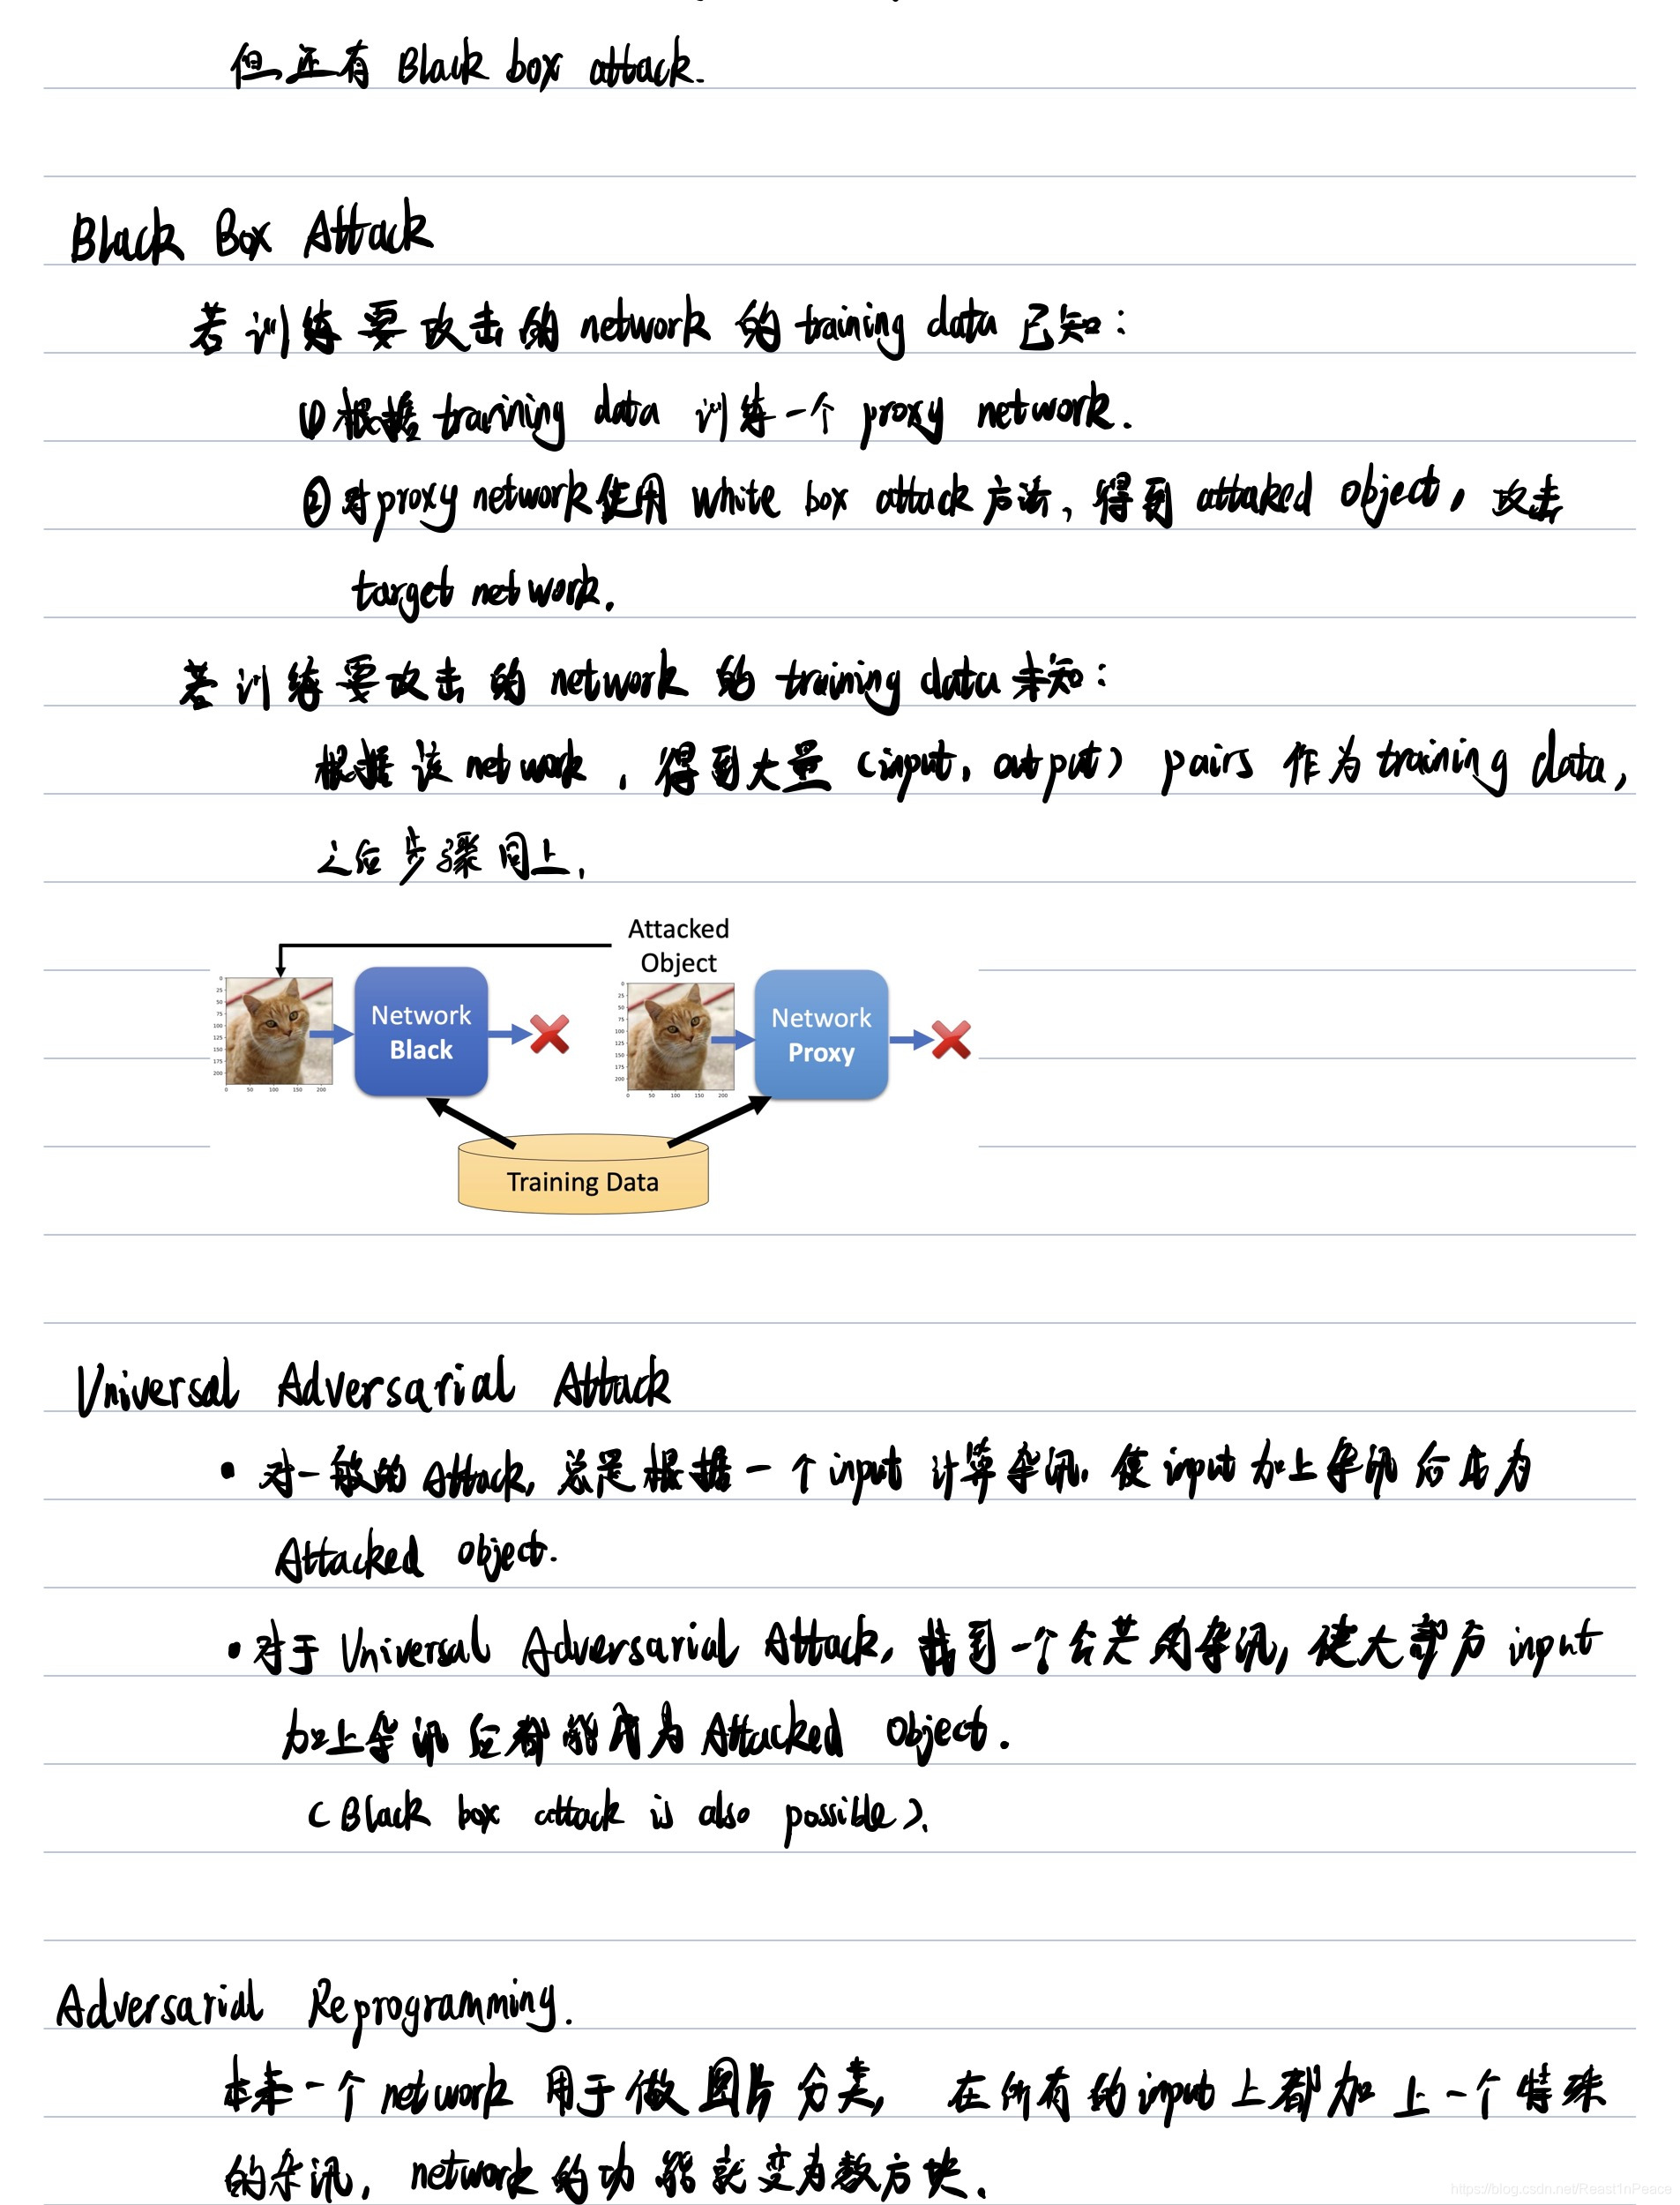 但还有 Black box attack.
Black Box Attack
若训练要攻击的 network 的 training data 已知：
① 根据 training data 训练一个 proxy network.
② 对 proxy network 使用 white box attack 方法, 得到 attaked object, 攻击
target network.
若训练要攻击的 network 的 training data 未知：
根据该 network, 得到大量 (input, output) pairs 作为 training data,
之后步骤同上.
Attacked
Object
Network
Black
Network
Proxy
0
25
50
75
100
125
150
175
200
0 50 100 150 200
0
25
50
75
100
125
150
175
200
0 50 100 150 200
Training Data
Universal Adversarial Attack
• 对一般的 Attack, 总是根据一个 input 计算杂讯. 使 input 加上杂讯后成为
Attacked object.
• 对于 Universal Adversarial Attack, 找到一个公共的杂讯, 使大部分 input
加上杂讯后都能成为 Attacked Object.
(Black box attack is also possible).
Adversarial Reprogramming.
本来一个 network 用于做图片分类, 在所有的 input 上都加上一个特殊
的杂讯, network 的功能就变为数方块.
https://blog.csdn.net/Reast1nPeace